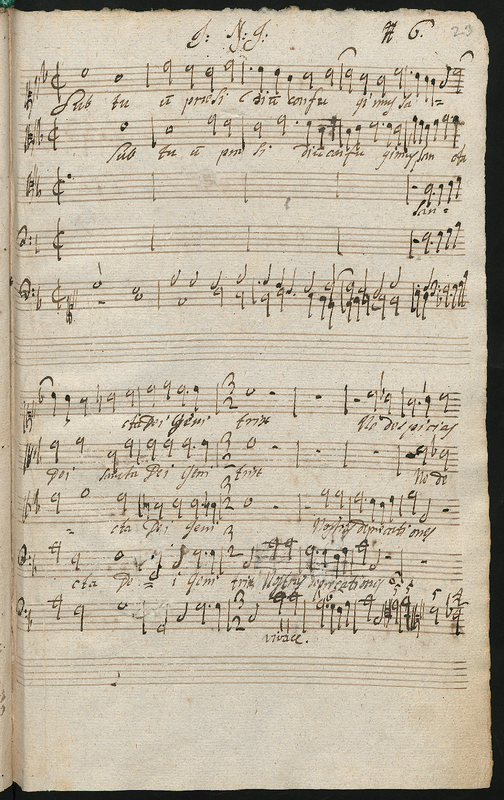 J: N: J: № 6. 23
Sub tu u præsi diu confu gimus Sa =
Sub tu u præ si diu confu gimus San cta
San =
cta Dei Geni trix Ne despicias
Dei Sancta Dei Geni trix Ne de
= cta Dei Geni Nostras deprecationes
cta De = i Geni trix Nostras deprecationes
vivace.